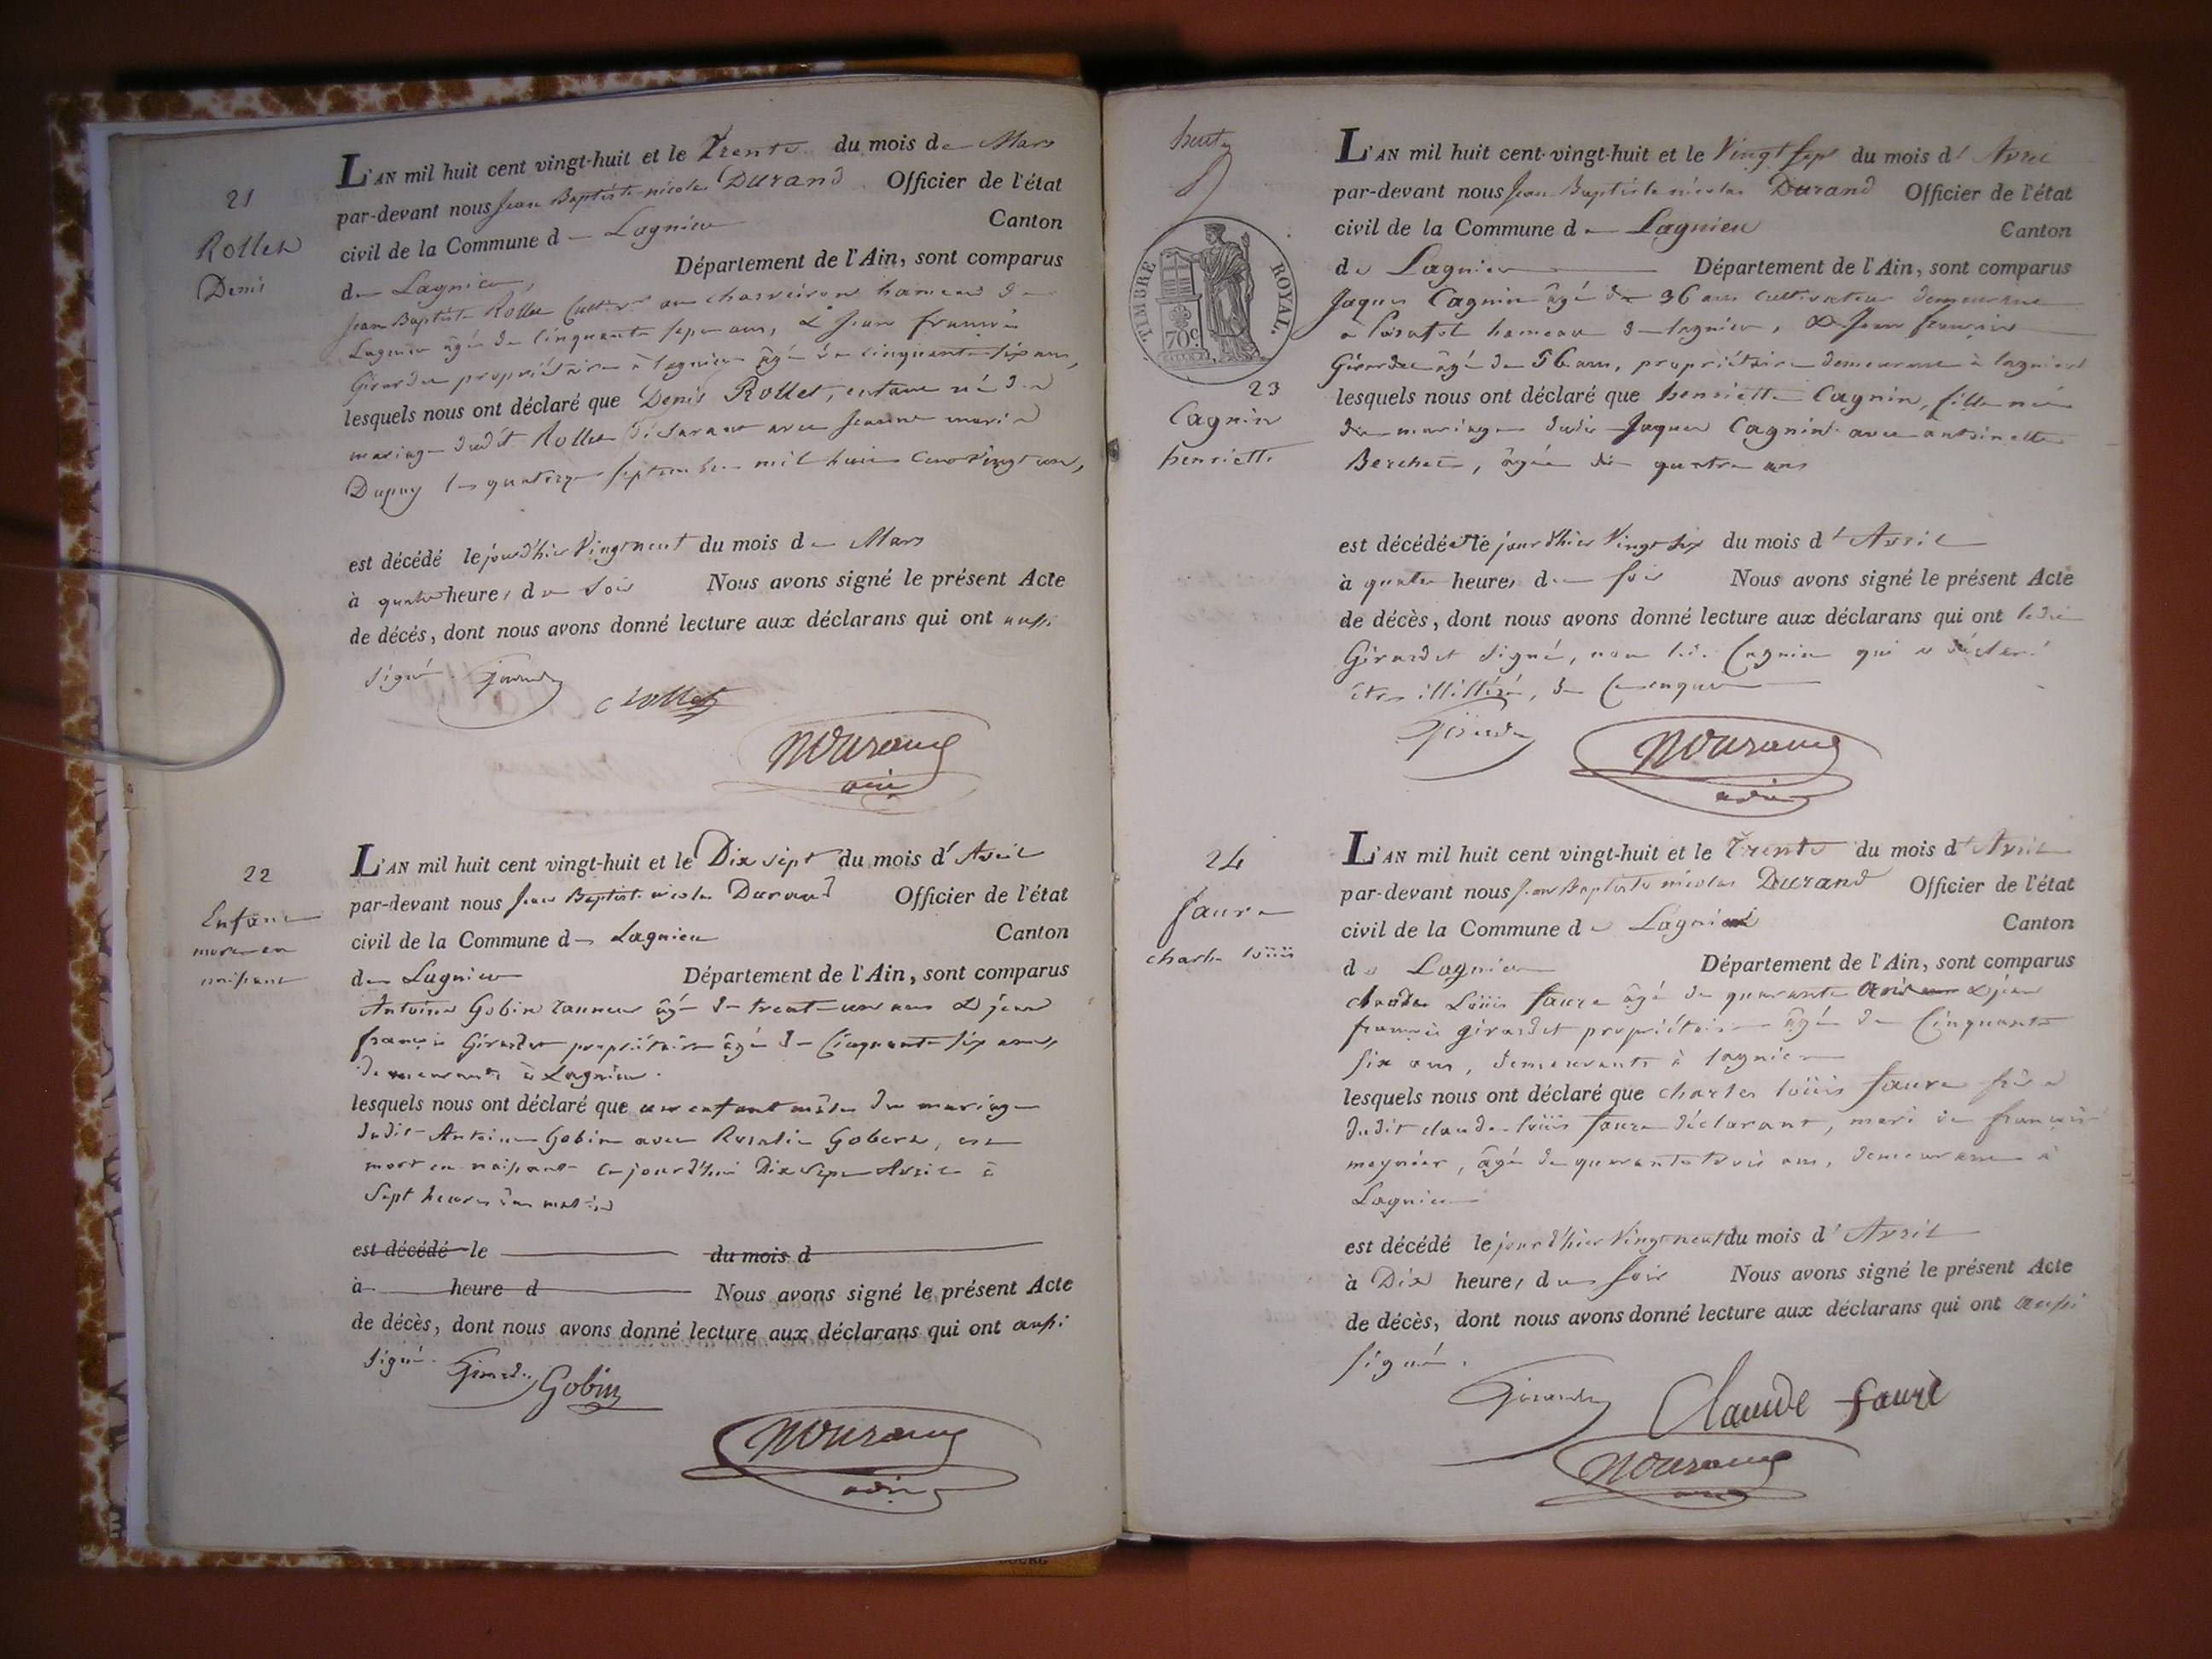 21
Rollet
Denis
L'AN mil huit cent vingt-huit et le Trente du mois de Mars
par-devant nous Jean Baptiste nicolas Durand Officier de l'état
civil de la Commune d Lagnieu Canton
de Lagnieu, Département de l'Ain, sont comparus
Jean Baptiste Rollet Cultivr au charveiron hameau de
Lagnieu âgé de cinquante sept ans, & Jean françois
Girardet propriétaire à lagnieu âgé de cinquante six ans,
lesquels nous ont déclaré que Denis Rollet, enfant né du
mariage dudit Rollet déclarant avec Jeanne marie
Dupuy le quatorze septembre mil huit cent vingt un,
est décédé le jourd'hier Vingt neuf du mois de Mars
à quatre heures du soir Nous avons signé le présent Acte
de décès, dont nous avons donné lecture aux déclarans qui ont aussi
signé. Girardet
Rollet
NDurand
22
Enfant
mort en
naissant
L'AN mil huit cent vingt-huit et le Dix sept du mois d'Avril
par-devant nous Jean Baptiste nicolas Durand Officier de l'état
civil de la Commune de Lagnieu Canton
de Lagnieu Département de l'Ain, sont comparus
Antoine Gobin Tanneur âgé de trente un ans & jean
françois Girardet propriétaire âgé de Cinquante six ans,
demeurants à Lagnieu.
lesquels nous ont déclaré que un enfant mâle du mariage
dudit Antoine Gobin avec Rosalie Gobert, est
mort en naissant ce jourd'hui Dix sept Avril à
Sept heures du matin
est décédé le du mois d
à heure d Nous avons signé le présent Acte
de décès, dont nous avons donné lecture aux déclarans qui ont aussi
signé. Girardet Gobin
NDurand
huit
TIMBRE ROYAL.
70c
23
Cagnin
henriette
L'AN mil huit cent vingt-huit et le Vingt sept du mois d'Avril
par-devant nous Jean Baptiste nicolas Durand Officier de l'état
civil de la Commune de Lagnieu Canton
de Lagnieu Département de l'Ain, sont comparus
Jaques Cagnin âgé de 36 ans cultivateur demeurant
a hameau de lagnieu, & Jean françois
Girardet âgé de 56 ans, propriétaire demeurant à lagnieu
lesquels nous ont déclaré que henriette Cagnin, fille née
du mariage dudit Jaques Cagnin avec antoinette
Berchet, âgée de quatre ans
est décédée le jourd'hier Vingt six du mois d'Avril
à quatre heures du soir Nous avons signé le présent Acte
de décès, dont nous avons donné lecture aux déclarans qui ont ledit
Girardet signé, non led. Cagnin qui a déclaré
être illitéré, de ce enquis
Girardet
NDurand
24
faure
charles loüis
L'AN mil huit cent vingt-huit et le Trente du mois d'Avril
par-devant nous Jean Baptiste nicolas Durand Officier de l'état
civil de la Commune de Lagnieu Canton
de Lagnieu Département de l'Ain, sont comparus
claude Loüis faure âgé de quarante ans & jean
françois girardet propriétaire âgé de Cinquante
six ans, demeurants à lagnieu
lesquels nous ont déclaré que charles loüis faure frère
dudit claude loüis faure déclarant, mari de françoise
meynier, âgé de quarante trois ans, demeurant à
Lagnieu
est décédé le jourd'hier Vingt neuf du mois d'Avril
à Dix heures du soir Nous avons signé le présent Acte
de décès, dont nous avons donné lecture aux déclarans qui ont aussi
signé.
Girardet Claude faure
NDurand